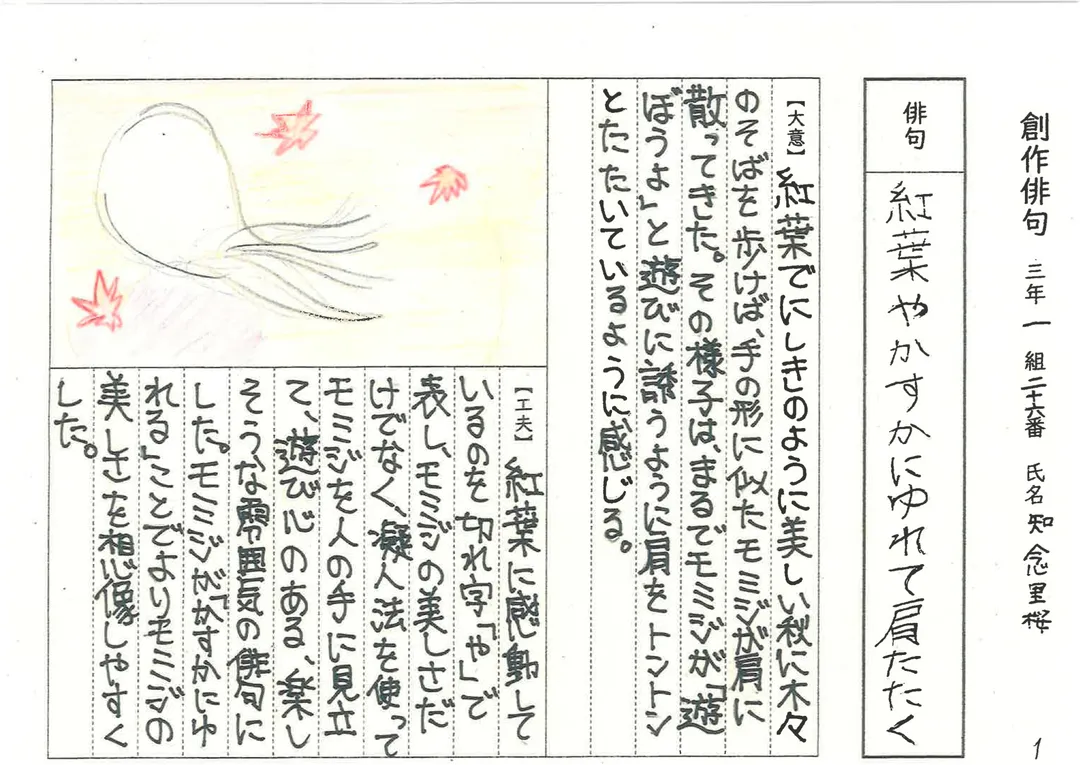 創作俳句 三年 一 組二十六番 氏名 知念里桜
俳句
紅葉やかすかにゆれて肩たたく
【大意】紅葉でにしきのように美しい秋に木々
のそばを歩けば、手の形に似たモミジが肩に
散ってきた。その様子は、まるでモミジが「遊
ぼうよ」と遊びに誘うように肩をトントン
とたたいているように感じる。
【工夫】紅葉に感動して
いるのを切れ字「や」で
表し、モミジの美しさだ
けでなく、凝人法を使って
モミジを人の手に見立
て、遊び心のある、楽し
そうな雰囲気の俳句に
した。モミジが「かすかにゆ
れる」ことでよりモミジの
美しさを想像しやすく
した。
1